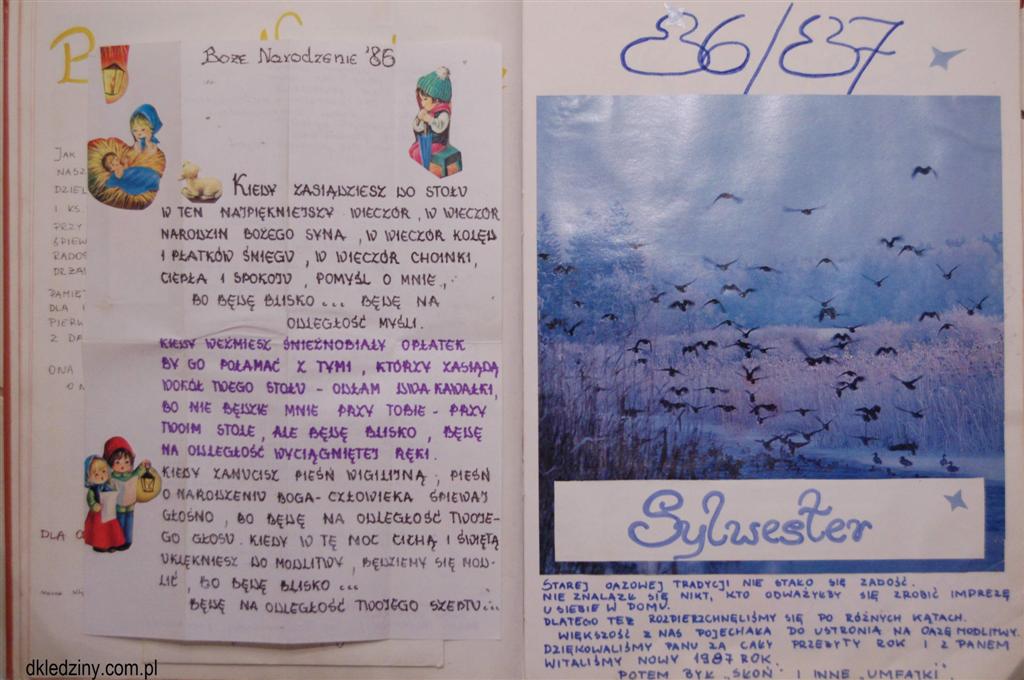 Boże Narodzenie '86
Jak
nasz
dziel
i ks.
przy
śpiew
rados
drża
pamię
dla
pierw
z da
ona
dla
Kiedy zasiądziesz do stołu
w ten najpiękniejszy wieczór, w wieczór
narodzin Bożego Syna, w wieczór kolęd
i płatków śniegu, w wieczór choinki,
ciepła i spokoju, pomyśl o mnie,.
bo będę blisko... będę na
odległość myśli.
Kiedy weźmiesz śnieżnobiały opłatek
by go połamać z tymi, którzy zasiądą
wokół twego stołu - odłam dwa kawałki,
bo nie będzie mnie przy tobie - przy
twoim stole, ale będę blisko, będę
na odległość wyciągniętej ręki.
Kiedy zanucisz pieśń wigilijną; pieśń
o narodzeniu Boga-Człowieka śpiewaj
głośno, bo będę na odległość twoje-
go głosu. Kiedy w tę noc cichą i świętą
uklękniesz do modlitwy, będziemy się mod-
lić, bo będę blisko...
będę na odległość twojego szeptu...
86/87
Sylwester
Starej oazowej tradycji nie stało się zadość.
Nie znalazł się nikt, kto odważyłby się zrobić imprezę
u siebie w domu.
Dlatego też rozpierzchnęliśmy się po różnych kątach.
Większość z nas pojechała do Ustronia na Oazę Modlitwy.
Dziękowaliśmy Panu za cały przeżyty rok i z Panem
witaliśmy nowy 1987 rok.
Potem był "Słoń" i inne "umfajki".
dkledziny.com.pl